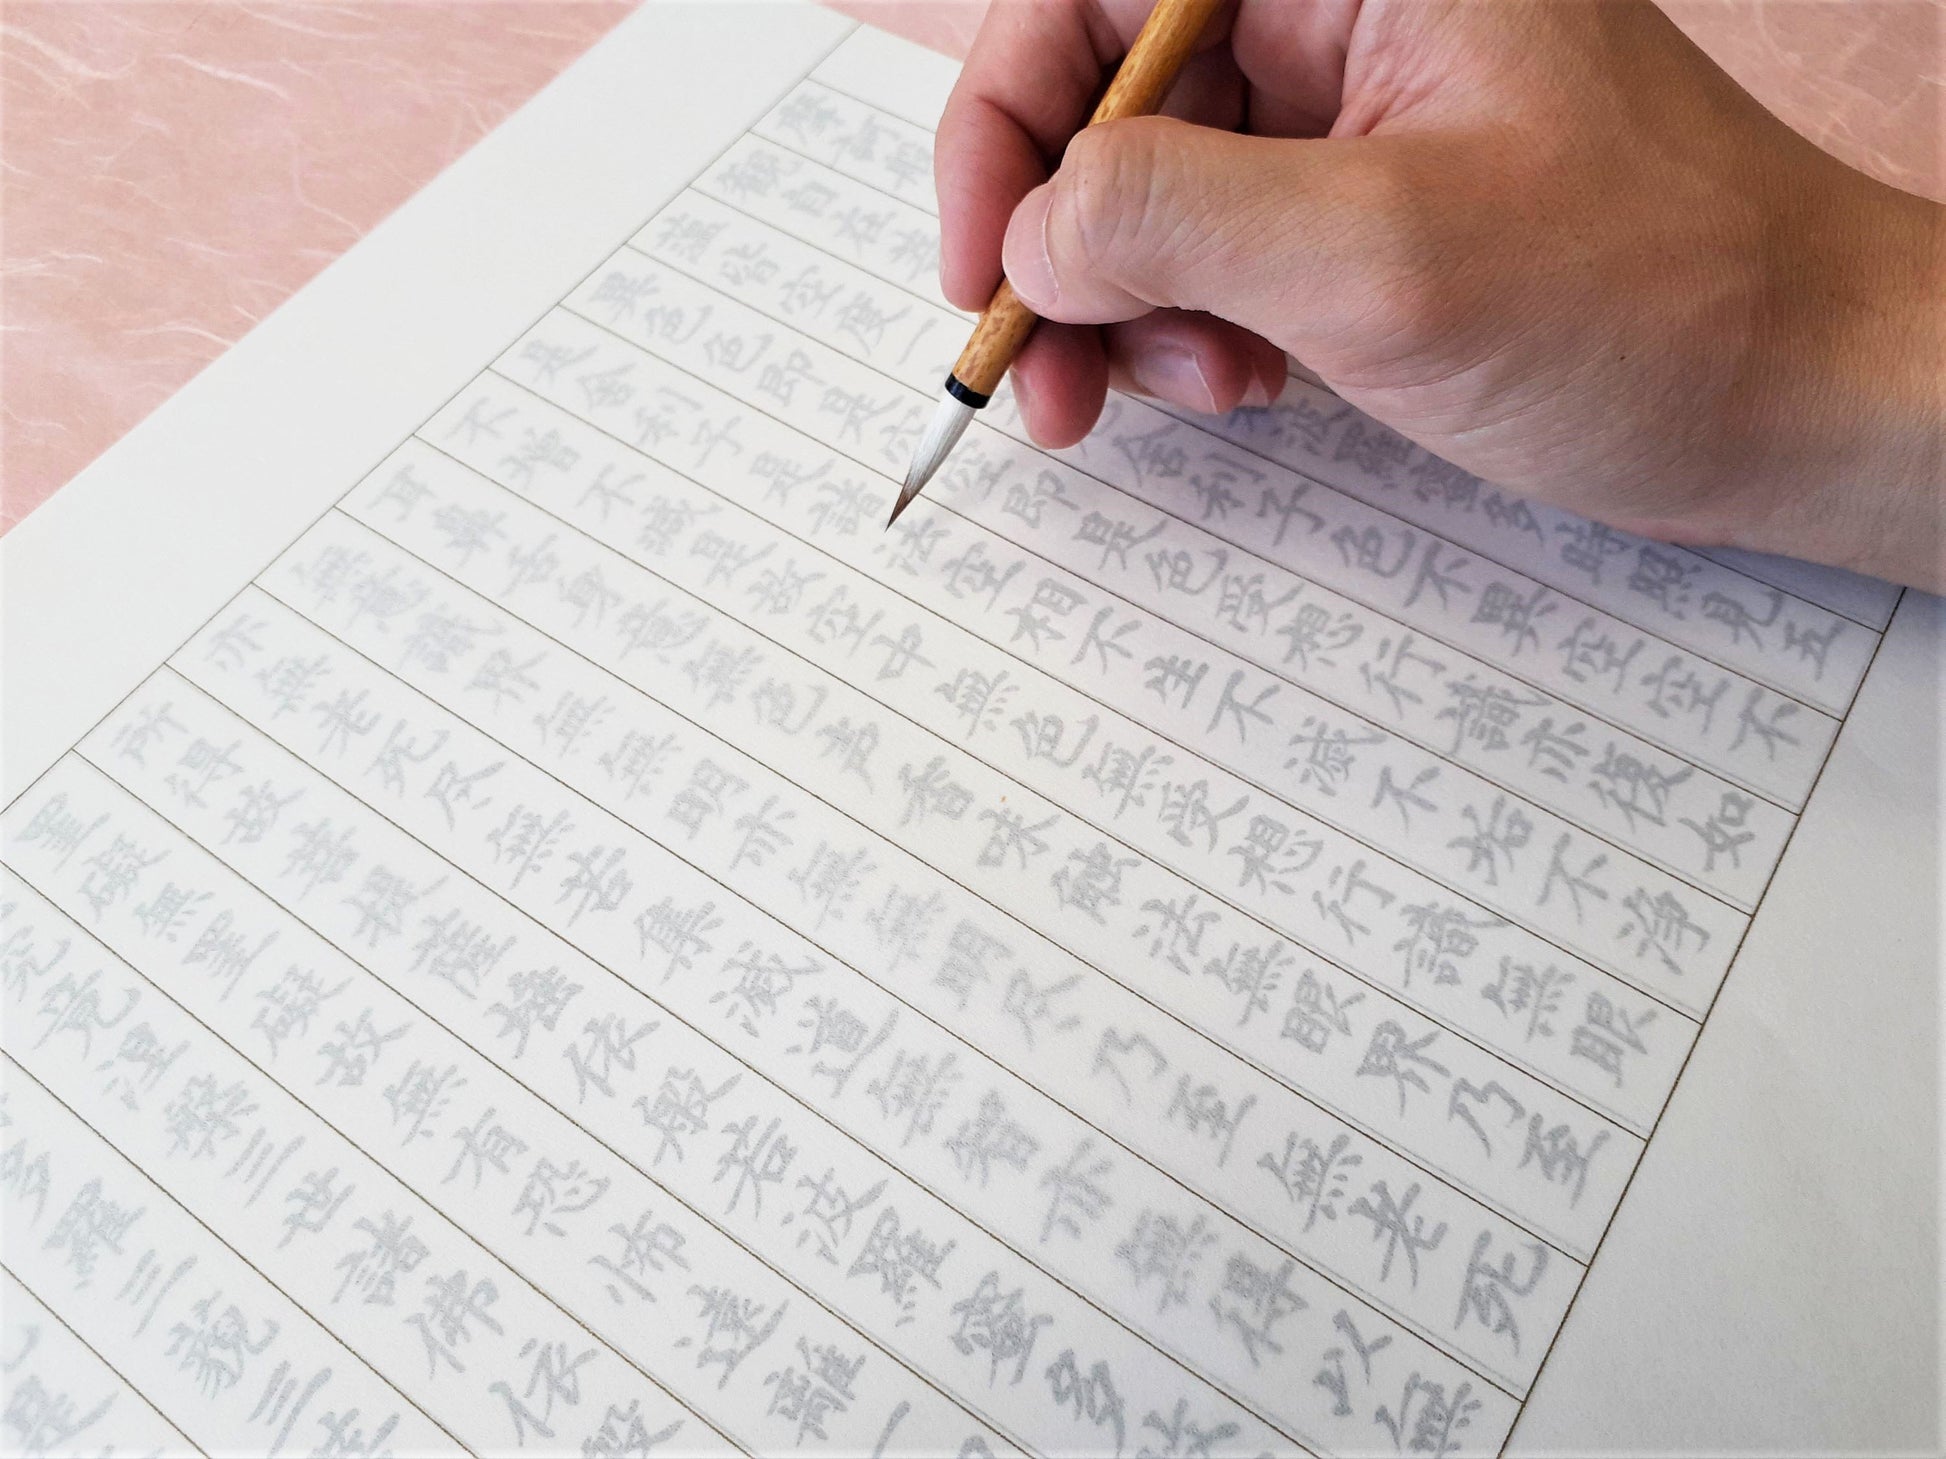 摩訶般
観自在菩波羅蜜多時照見五
蘊皆空度一舎利子色不異空空不
異色色即是空空即是色受想行識亦復如
是舎利子是諸法空相不生不滅不垢不浄
不増不減是故空中無色無受想行識無眼
耳鼻舌身意無色声香味触法無眼界乃至
無意識界無無明亦無無明尽乃至無老死
亦無老死尽無苦集滅道無智亦無得以無
所得故菩提薩埵依般若波羅蜜多故
罣礙無罣礙故無有恐怖遠離一
究竟涅槃三世諸佛依般
多羅三藐三